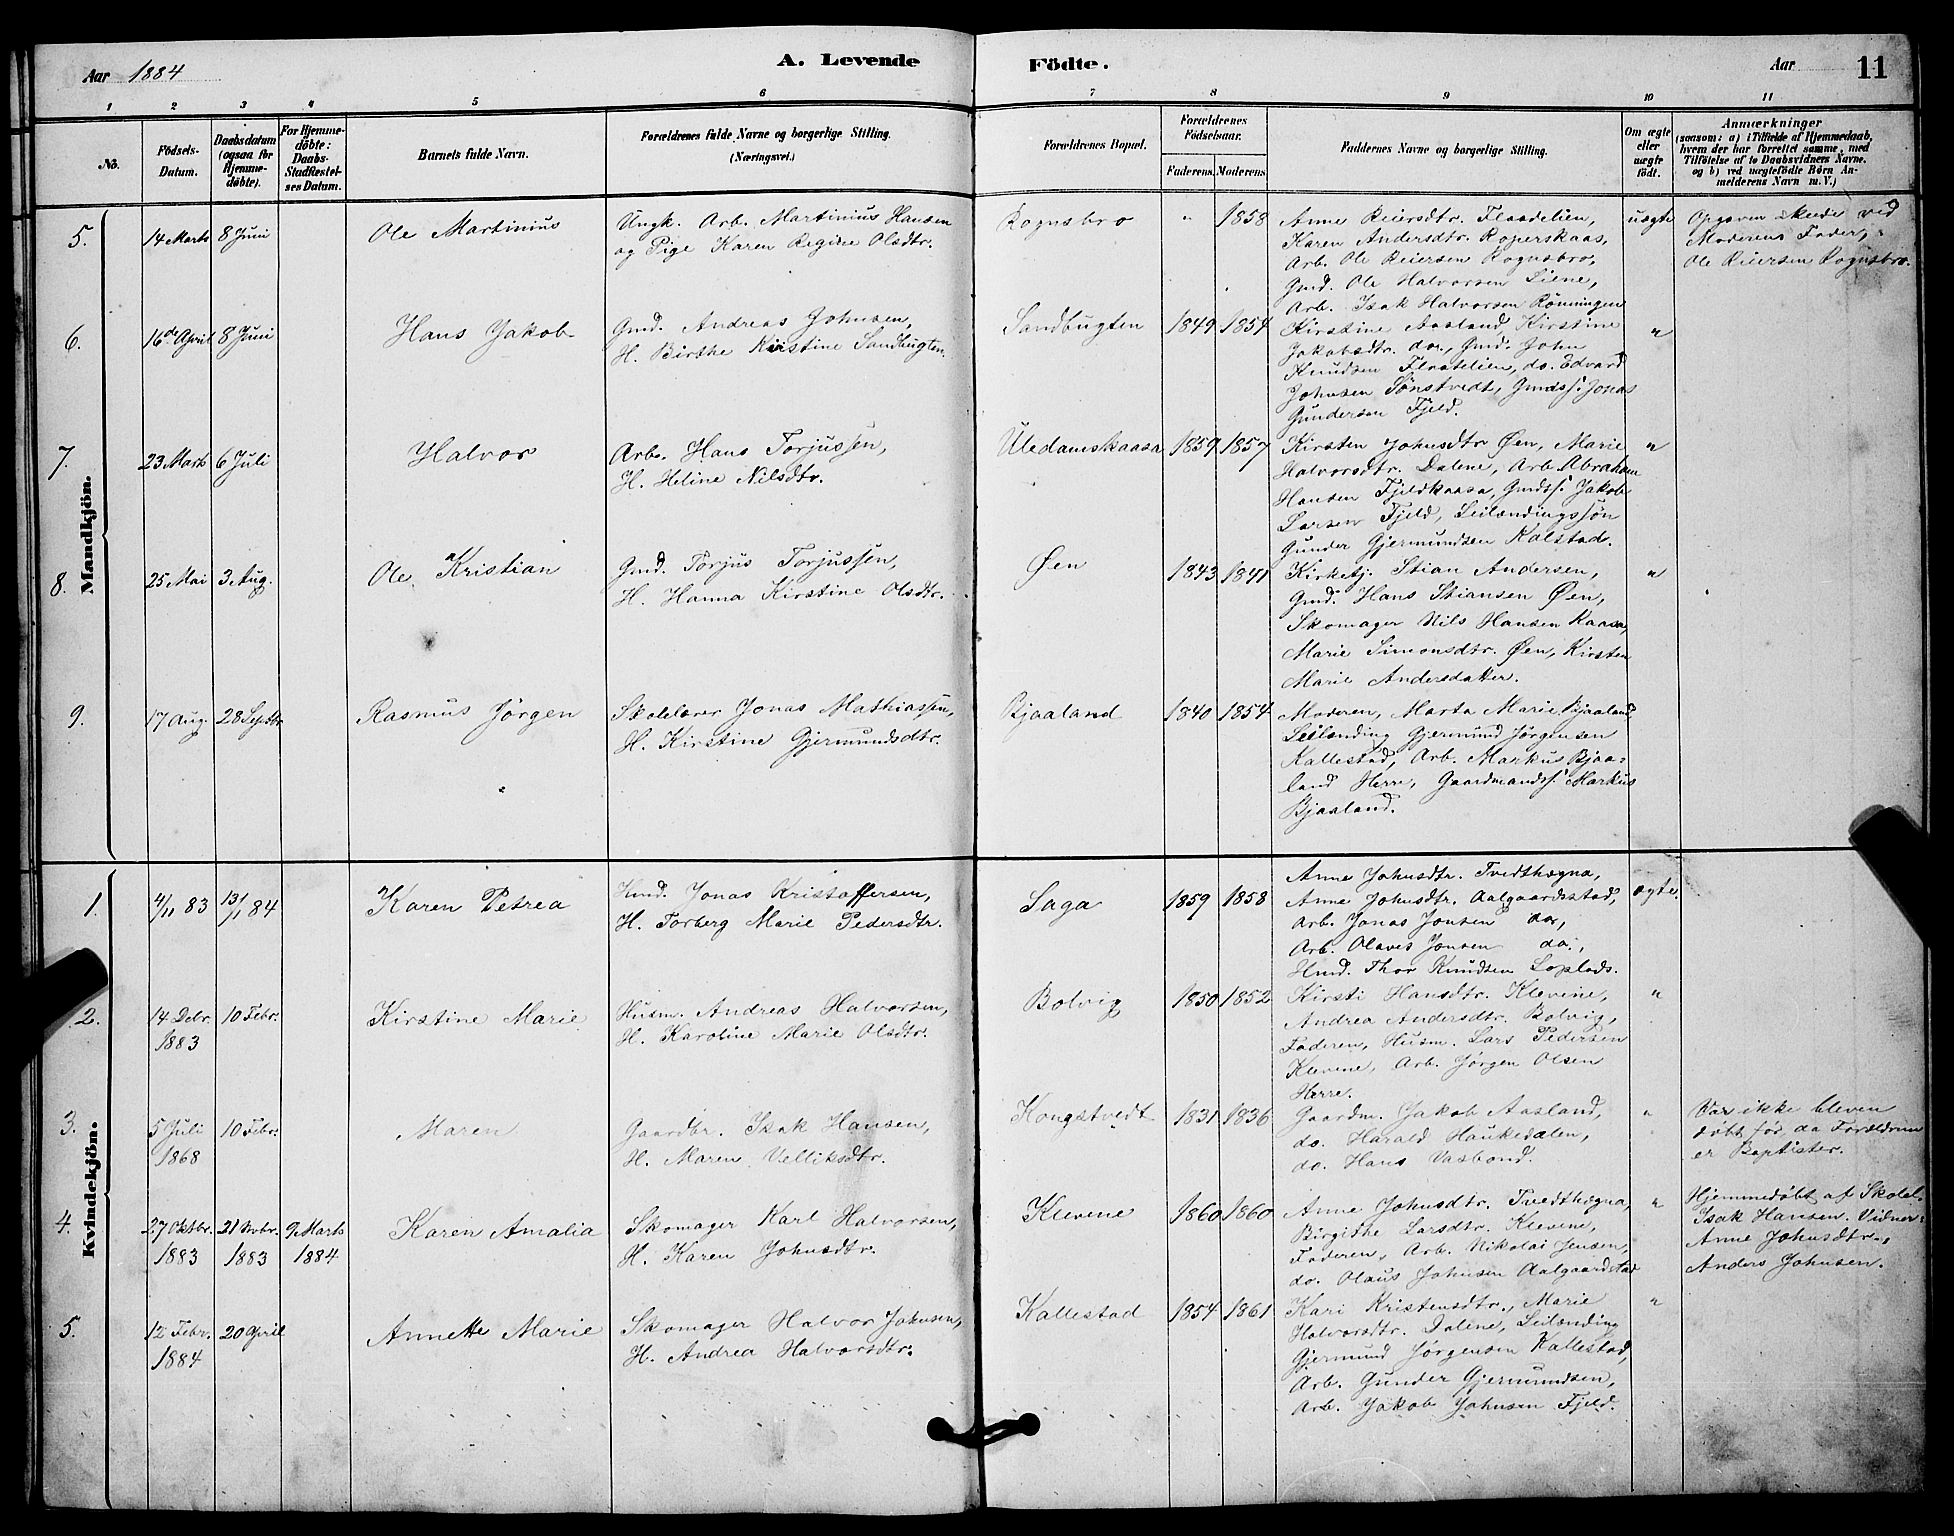 Aar 1884
A. Levende Födte.
Aar 11
1 2 3 4 5 6 7 8 9 10 11
No.
Födsels-
Datum.
Daabsdatum
(ogsaa for
Hjemme-
döbte).
For Hjemme-
döbte:
Daabs-
Stadfæstel-
ses Datum.
Barnets fulde Navn.
Forældrenes fulde Navne og borgerlige Stilling.
(Næringsvei.)
Forældrenes Bopæl.
Forældrenes
Födselsaar.
Faderens. Moderens.
Faddernes Navne og borgerlige Stilling.
Om ægte
eller
uægte
født.
Anmærkninger
(saasom: a) i Tilfælde af Hjemmedaab,
hvem der har forrettet samme, med
Tilföielse af to Daabsvidners Navne.
og b) ved uægtefödte Börn An-
melderens Navn m. V.)
Mandkjön.
5.
14 Marts
8 Juni
Ole Martinius
Ungk. Arb. Martinius Hansen
og Pige Karen Regine Olsdtr.
Rognsbro
"
1858
Anne Reiersdtr. Flaadelien,
Karen Andersdtr. Roperskaas,
Arb. Ole Reiersen Rognsbro,
Gmd. Ole Halvorsen Liene,
Arb. Isak Halvorsen Rönningen
uægte
Opgaven skede ved
Moderens Fader,
Ole Reiersen Rognsbro.
6.
16de April
8 Juni
Hans Jakob
Gmd. Andreas Johnsen,
H. Birthe Kirstine Sandbugten.
Sandbugten
1849
1854
Kirstine Aasland, Kirstine
Jakobsdtr. do., Gmd. John
Knudsen Flaatelien, do. Edvard
Johnsen Sönstvedt, Gmdss. Jonas
Gundersen Fjeld.
"
7.
23 Marts
6 Juli
Halvor
Arb. Hans Torjussen,
H. Heline Nilsdtr.
Uledamskaasa
1859
1857
Kirsten Johnsdtr Øen, Marie
Halvorsdtr. Dalene, Arb. Abraham
Hansen Fjeldkaasa, Gmdss. Jakob
Larsen Fjeld, Leilændingssøn
Gunder Gjermundsen Kalstad.
"
8.
25 Mai
3 Aug.
Ole Kristian
Gmd. Torjus Torjussen,
H. Hanna Kirstine Olsdtr.
Øen
1843
1841
Kirketj. Stian Andersen,
Gmd. Hans Stiansen Øen,
Skomager Nils Hansen Kaasa,
Marie Simonsdtr. Øen, Kirsten
Marie Andersdatter.
"
9.
17 Aug.
28 Septbr
Rasmus Jörgen
Skolelærer Jonas Mathiassen,
H. Kirstine Gjermundsdtr.
Bjaaland
1840
1854
Moderen, Marta Marie Bjaaland,
Leilænding Gjermund Jörgensen
Kallestad, Arb. Markus Bjaa-
land Herre, Gaardmandss. Markus
Bjaaland.
Kvindekjön.
1.
4/11 83
13/1 84
Karen Petrea
Hmd. Jonas Kristoffersen,
H. Torberg Marie Pedersdtr.
Saga
1859
1858
Anne Johnsdtr. Tvedthægna,
Anne Johnsdtr. Aalgaardsstad,
Arb. Jonas Jonsen do.,
Arb. Olaves Jonsen do.,
Hmd. Thor Knudsen Loplads.
ægte.
2.
14 Debr.
1883
10 Febr.
Kirstine Marie
Husm. Andreas Halvorsen,
H. Karoline Marie Olsdtr.
Bolvig
1850
1852
Kirsti Hansdtr. Klevene,
Andrea Andersdtr. Bolvig,
Faderen, Husm. Lars Pedersen
Klevene, Arb. Jörgen Olsen
Herre.
"
3.
5 Juli
1868
10 Febr.
Maren
Gaardbr. Isak Hansen,
H. Maren Velliksdtr.
Kongstvedt
1831
1836
Gaardm. Jakob Aasland,
do. Harald Haukedalen,
do. Hans Vasbond.
"
Var ikke bleven
döbt för da Forældrene
er Baptister.
4.
27 Oktbr.
1883
21 Nvbr.
1883
9 Marts
1884
Karen Amalia
Skomager Karl Halvorsen,
H. Karen Johnsdtr.
Klevene
1860
1860
Anne Johnsdtr. Tvedthægna,
Birgithe Larsdtr. Klevene,
Faderen, Arb. Nikolai Jensen,
do. Olaus Johnsen Aalgaardstad
"
Hjemmedöbt af Skolel.
Isak Hansen. Vidner:
Anne Johnsdtr.,
Anders Johnsen.
5.
12 Febr.
1884
20 April
Annette Marie
Skomager Halvor Johnsen,
H. Andrea Halvorsdtr.
Kallestad
1854
1861
Kari Kristensdtr., Marie
Halvorsdtr. Dalene, Leilænding
Gjermund Jörgensen Kallestad,
Arb. Gunder Gjermundsen,
Arb. Jakob Johnsen Fjeld.
"